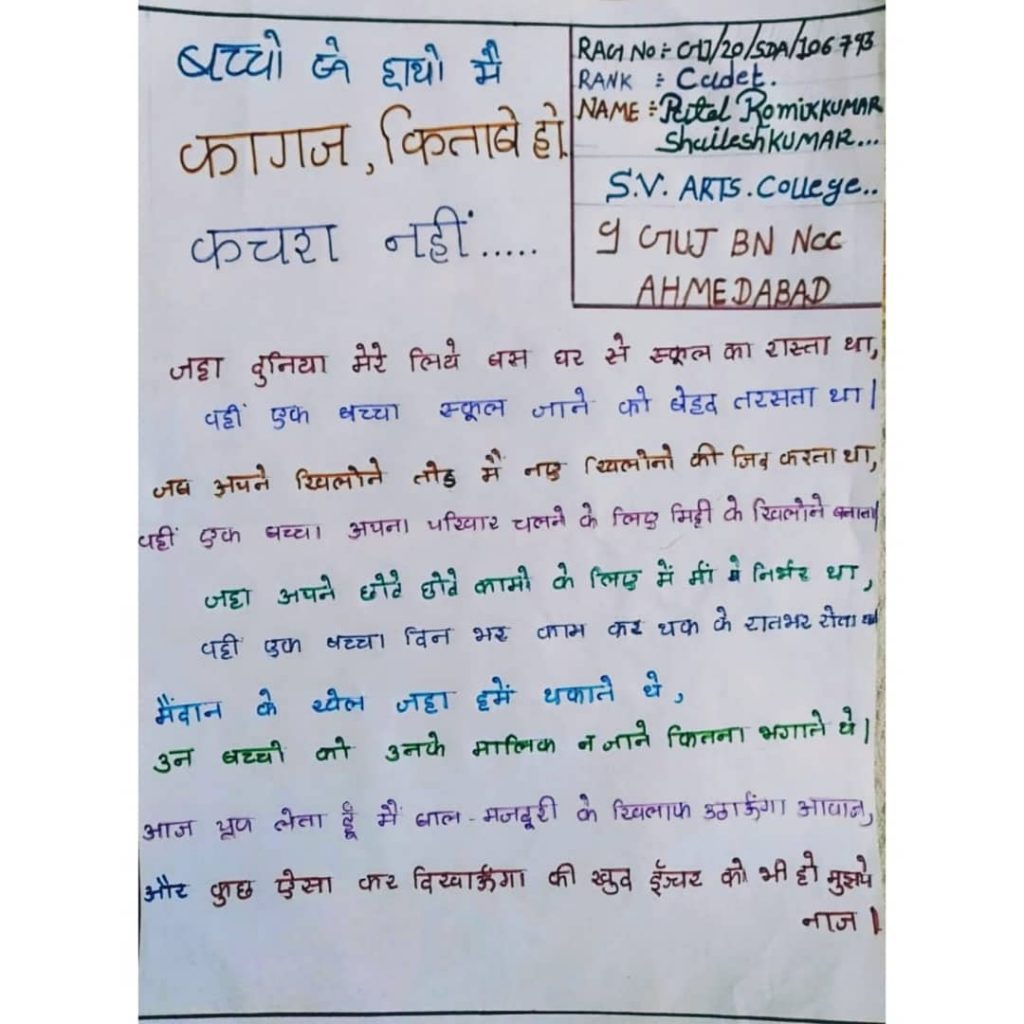 बच्चो के हाथो मै
कागज, किताबे हो
कचरा नहीं.....
RAGI No:- GJ/20/SDA/106793
RANK : Cadet.
NAME :- Patel RomikKUMAR
ShaileshKUMAR...
S.V. ARTS. College..
9 GUJ BN NCC
AHMEDABAD
जहा दुनिया मेरे लिये बस घर से स्कूल का रास्ता था,
वहीं एक बच्चा स्कूल जाने को बेहद तरसता था|
जब अपने खिलोने तोड मैं नए खिलोनो की जिद करता था,
वहीं एक बच्चा अपना परिवार चलने के लिए मिट्टी के खिलोने बनाता|
जहा अपने छोटे छोटे कामो के लिए में माँ पे निर्भर था,
वही एक बच्चा दिन भर काम कर थक के रातभर रोता था
मैंदान के खेल जहा हमें थकाते थे,
उन बच्चो को उनके मालिक न जाने कितना भगाते थे|
आज लेता हूँ मैं बाल-मजदूरी के खिलाफ उठाऊंगा आवाज,
और कुछ ऐसा कर दिखाऊंगा की खुद ईश्वर को भी हो मुझपे
नाज|